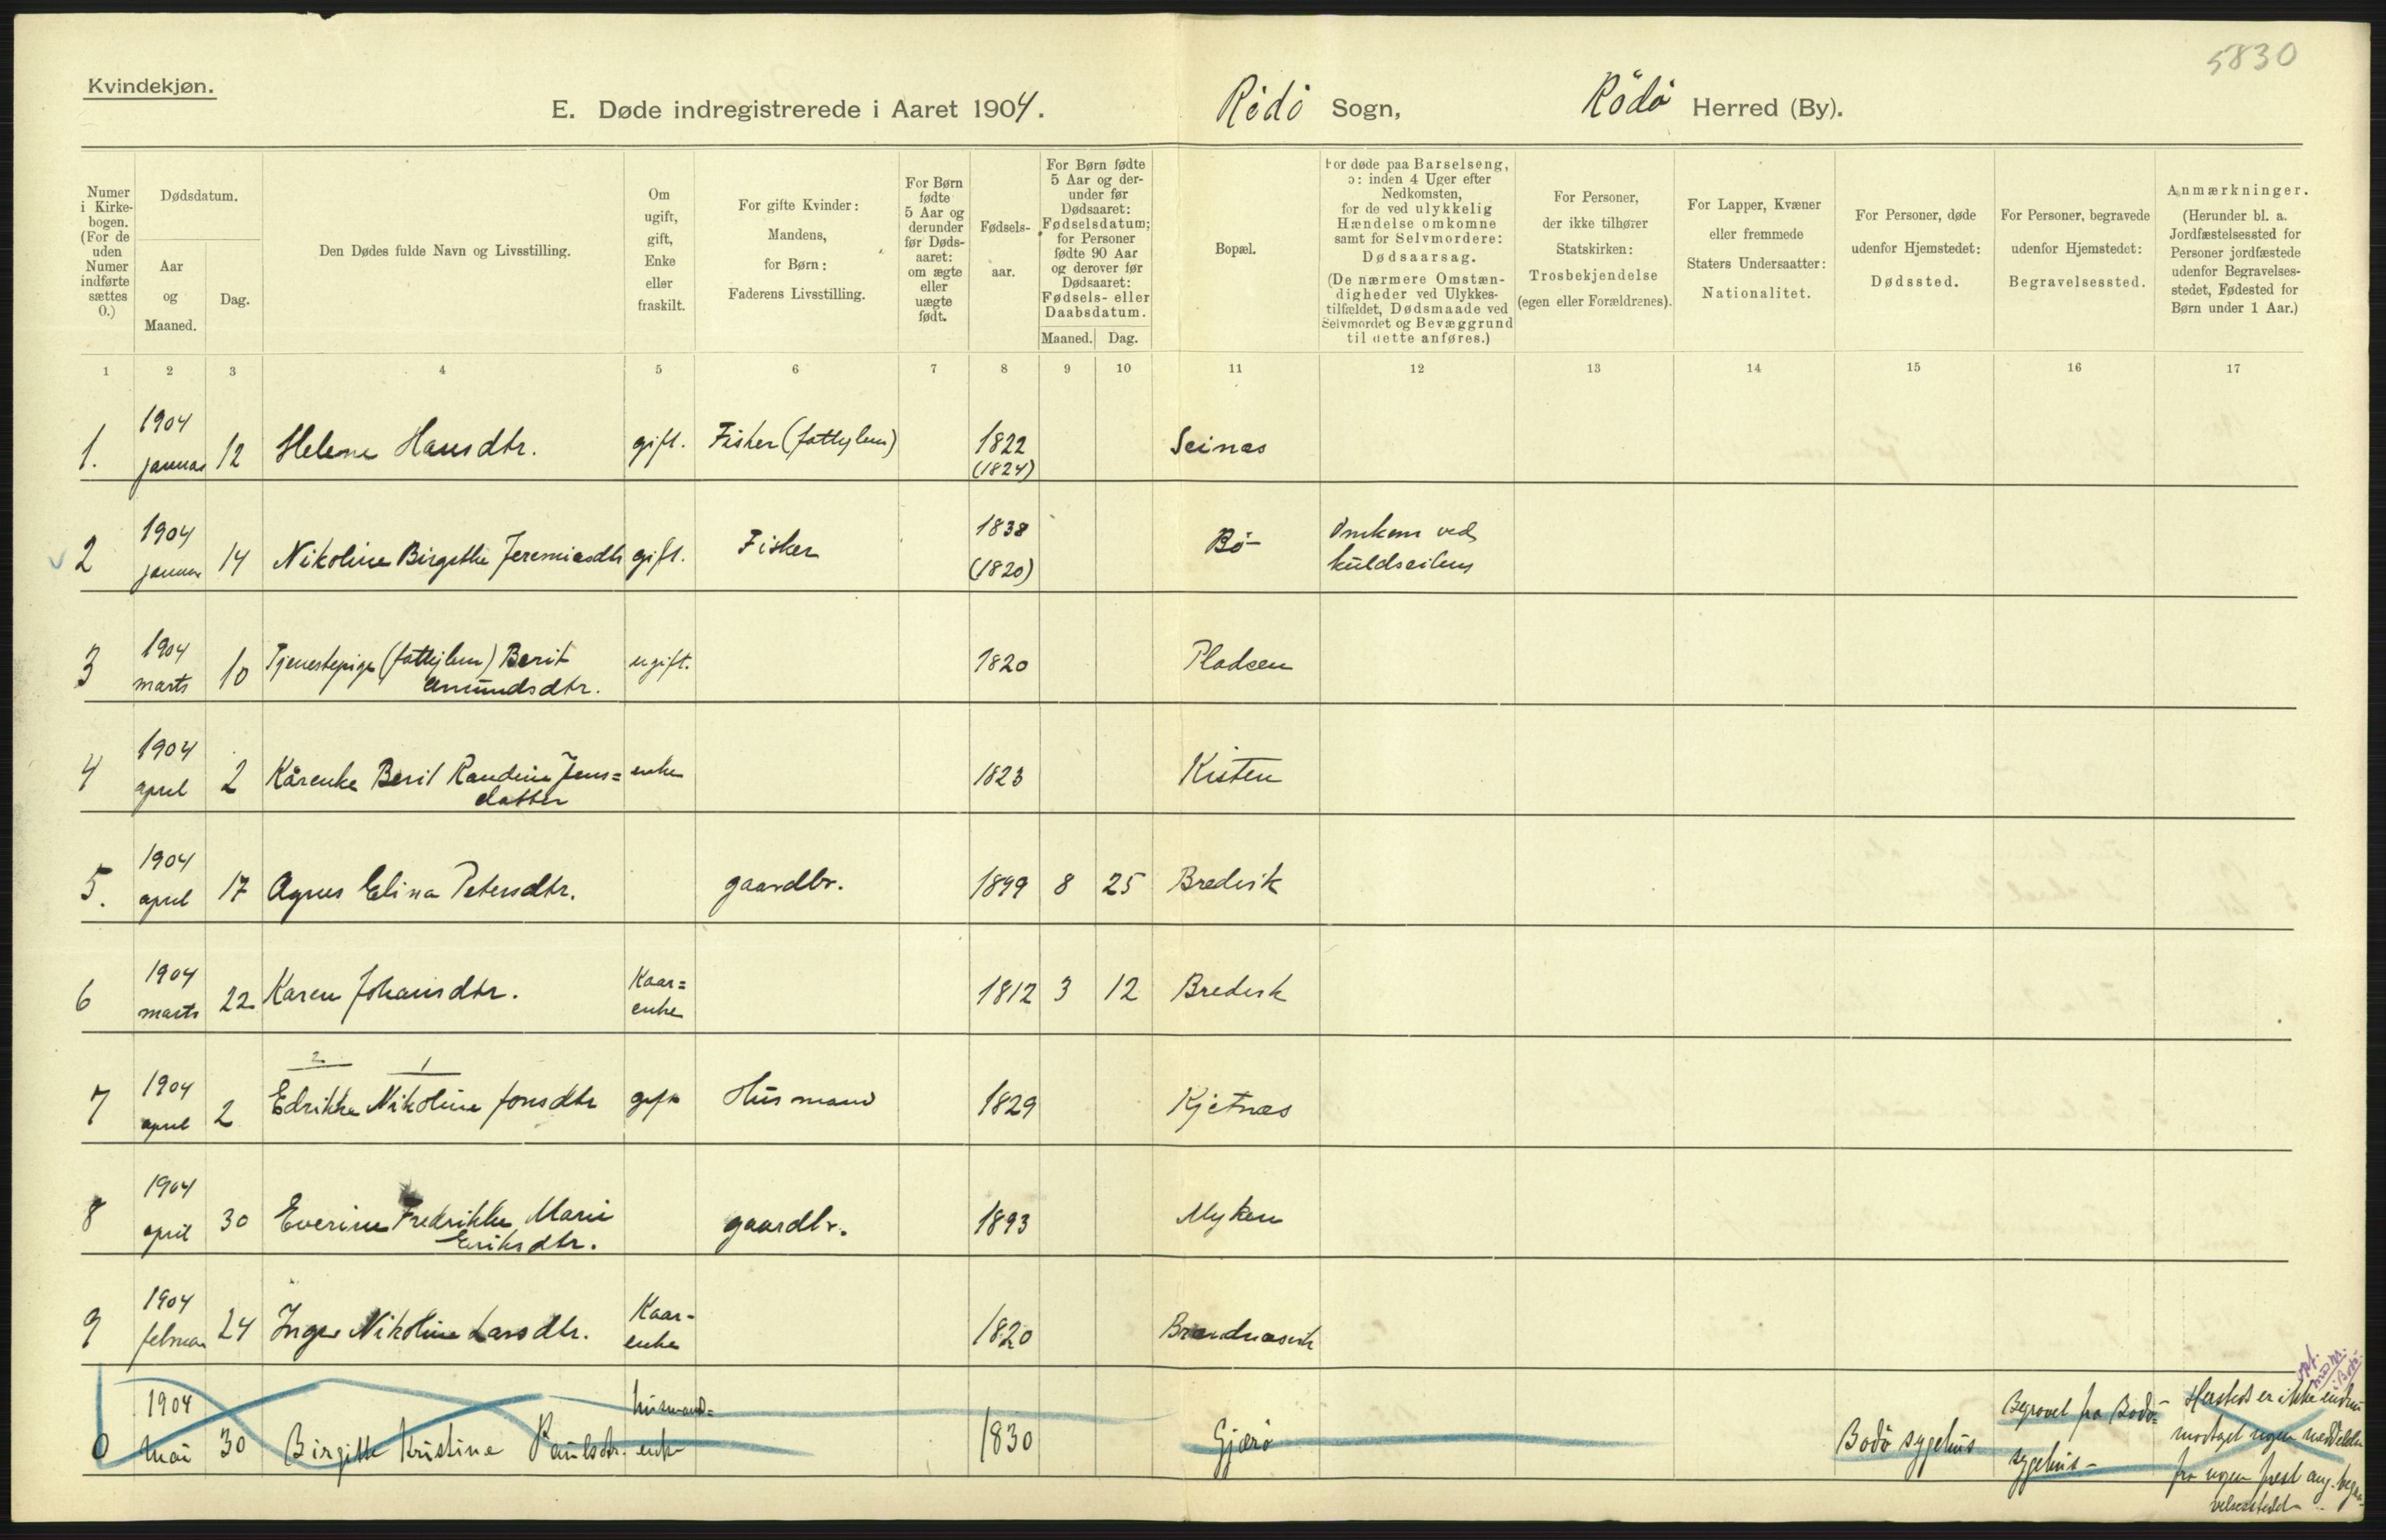 5830
Kvindekjøn.
E. Døde indregistrerede i Aaret 1904.
Rödö Sogn,
Rödö Herred (By).
Numer i Kirke-bogen. (For de uden Numer indførte sættes 0.)
Dødsdatum.
Aar og Maaned.
Dag.
Den Dødes fulde Navn og Livsstilling.
Om ugift, gift, Enke eller fraskilt.
For gifte Kvinder: Mandens, for Børn: Faderens Livsstilling.
For Børn fødte 5 Aar og derunder før Døds-aaret: om ægte eller uægte født.
Fødsels-aar.
For Børn fødte 5 Aar og der-under før Dødsaaret: Fødselsdatum; for Personer fødte 90 Aar og derover før Dødsaaret: Fødsels- eller Daabsdatum.
Maaned. Dag.
Bopæl.
For døde paa Barselseng, ɔ: inden 4 Uger efter Nedkomsten, for de ved ulykkelig Hændelse omkomne samt for Selvmordere: Dødsaarsag. (De nærmere Omstæn-digheder ved Ulykkes-tilfældet, Dødsmaade ved Selvmordet og Bevæggrund til dette anføres.)
For Personer, der ikke tilhører Statskirken: Trosbekjendelse (egen eller Forældrenes).
For Lapper, Kvæner eller fremmede Staters Undersaatter: Nationalitet.
For Personer, døde udenfor Hjemstedet: Dødssted.
For Personer, begravede udenfor Hjemstedet: Begravelsessted.
Anmærkninger. (Herunder bl. a. Jordfæstelsessted for Personer jordfæstede udenfor Begravelses-stedet, Fødested for Børn under 1 Aar.)
1 2 3 4 5 6 7 8 9 10 11 12 13 14 15 16 17
1. 1904 januar 12 Helene Hansdtr. gift. Fisker (fattiglem) 1822 (1824) Seines
2 1904 januar 14 Nikoline Birgithe Jeremiasdtr gift. Fisker 1838 (1820) Bö Omkom ved kuldseilens
3 1904 marts 10 Tjenestepige (fattiglem) Berit Amundsdtr. ugift. 1820 Pladsen
4 1904 april 2 Kårenke Berit Randine Jens=datter enke 1823 Kisten
5. 1904 april 17 Agnes Elina Petersdtr. gaardbr. 1899 8 25 Bredvik
6 1904 marts 22 Karen Johansdtr. Kaar=enke 1812 3 12 Bredvik
2 1
7 1904 april 2 Edrikke Nikoline Jonsdtr gift Husmand 1829 Kjetnæs
8 1904 april 30 Everine Fredrikke Marie Eriksdtr. gaardbr. 1893 Myken
9 1904 februar 24 Inger Nikoline Larsdtr. Kaar-enke 1820
0 1904 Mai 30 Birgitte Kristine Paulsdtr. husmand=enke 1830 Gjærö Bodö sygehus Begravet fra Bodö=sygehus- Hersteds er ikke endnu modtaget nogen meddelelse fra nogen prest ang. begra-velsesstedet